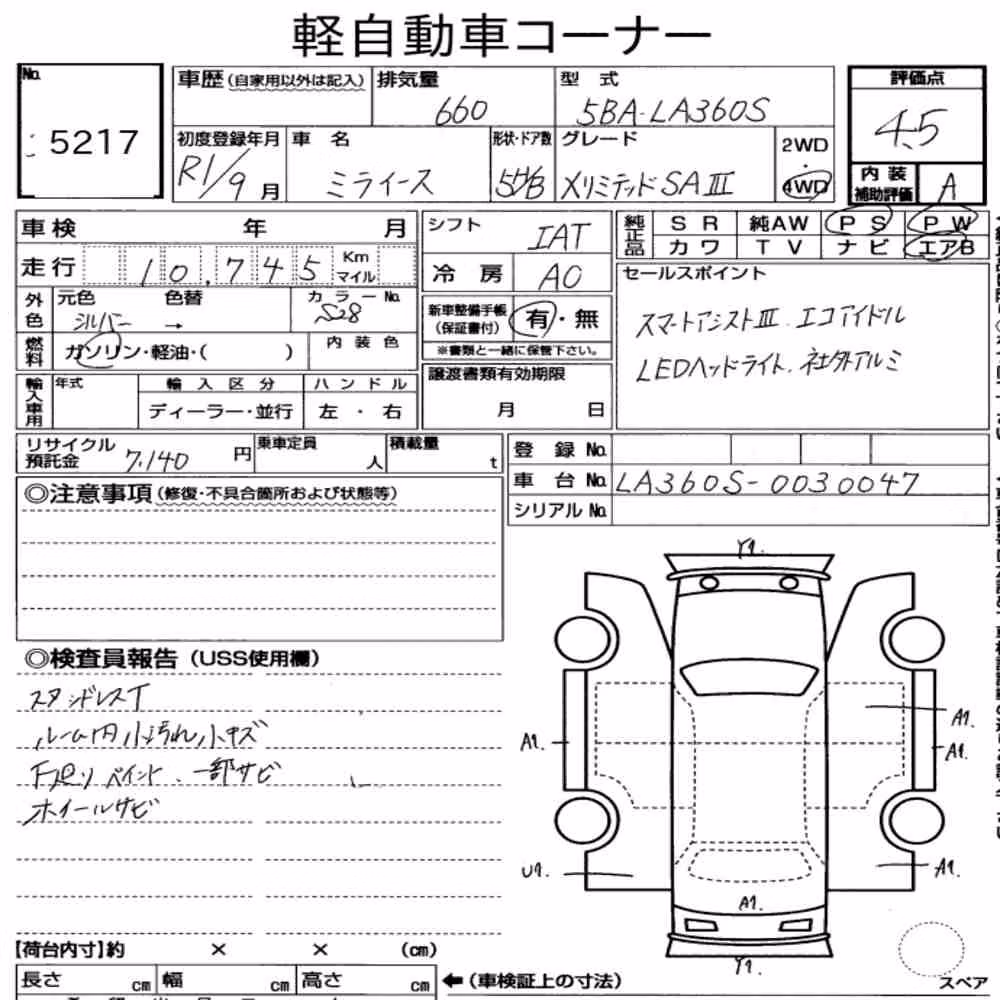 軽自動車コーナー
No. 5217
車歴(自家用以外は記入) 排気量 660 型式 5BA-LA360S
評価点 4.5
初度登録年月 R1/9月 車名 ミライース 形状・ドア数 5H/B グレード XリミテッドSAⅢ 2WD・4WD
内装補助評価 A
車検 年 月
走行 10,745 Km マイル
外色 元色 シルバー → 色替 カラーNo. S28
燃料 ガソリン・軽油・( ) 内装色
輸入車用 年式 輸入区分 ディーラー・並行 ハンドル 左・右
シフト IAT
冷房 AC
新車整備手帳(保証書付) 有・無
※書類と一緒に保管下さい。
譲渡書類有効期限
月 日
純正品 SR 純AW PS PW
カワ TV ナビ エアB
セールスポイント
スマートアシストⅢ. エコアイドル
LEDヘッドライト. 社外アルミ
リサイクル預託金 7,140円 乗車定員 人 積載量 t
登録No.
車台No. LA360S-0030047
シリアルNo.
◎注意事項(修復・不具合箇所および状態等)
◎検査員報告(USS使用欄)
スタンドレスT
ルーム内小汚れ小キズ
下廻りペイント. 一部サビ
ホイールサビ
Y1.
A1.
A1.
A1.
U1.
A1.
A1.
Y1.
スペア
【荷台内寸】約 × × (cm)
長さ cm 幅 cm 高さ cm
←(車検証上の寸法)